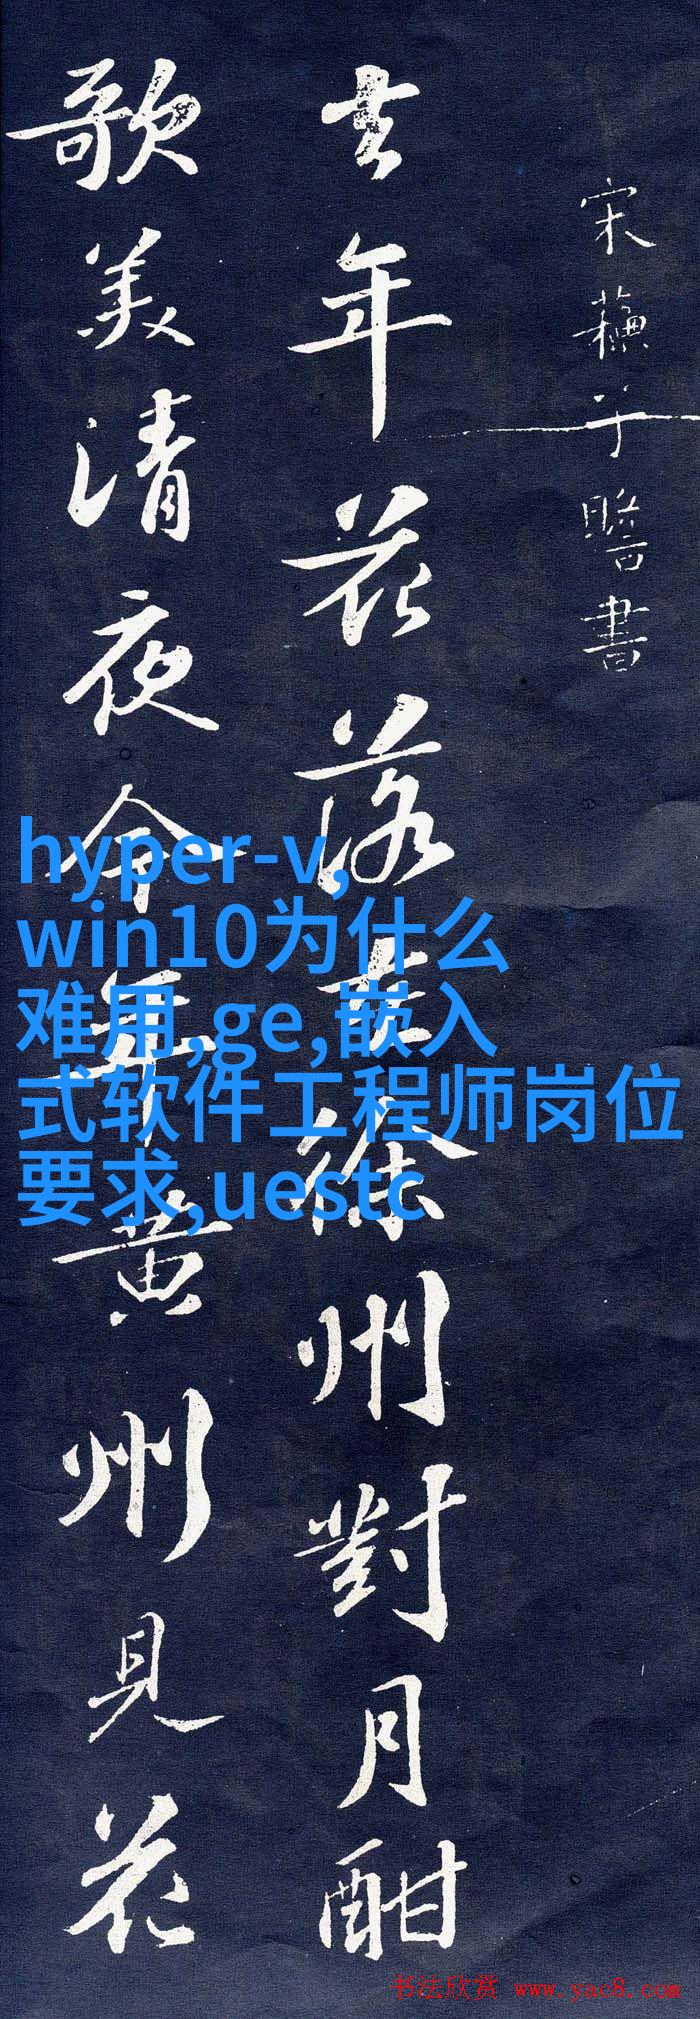 宋蘓子瞻書
去年花落去徐州對月酣
歌美清夜今年黄州見花
hyper-v,
win10为什么
难用,ge,嵌入
式软件工程师岗位
要求,uestc
书法欣赏 www.yac8.com